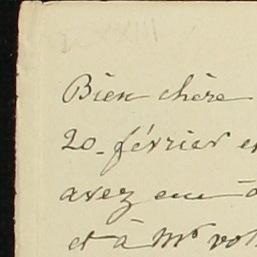 Bien chère
20 février e
avez eu à
et à Mr vot